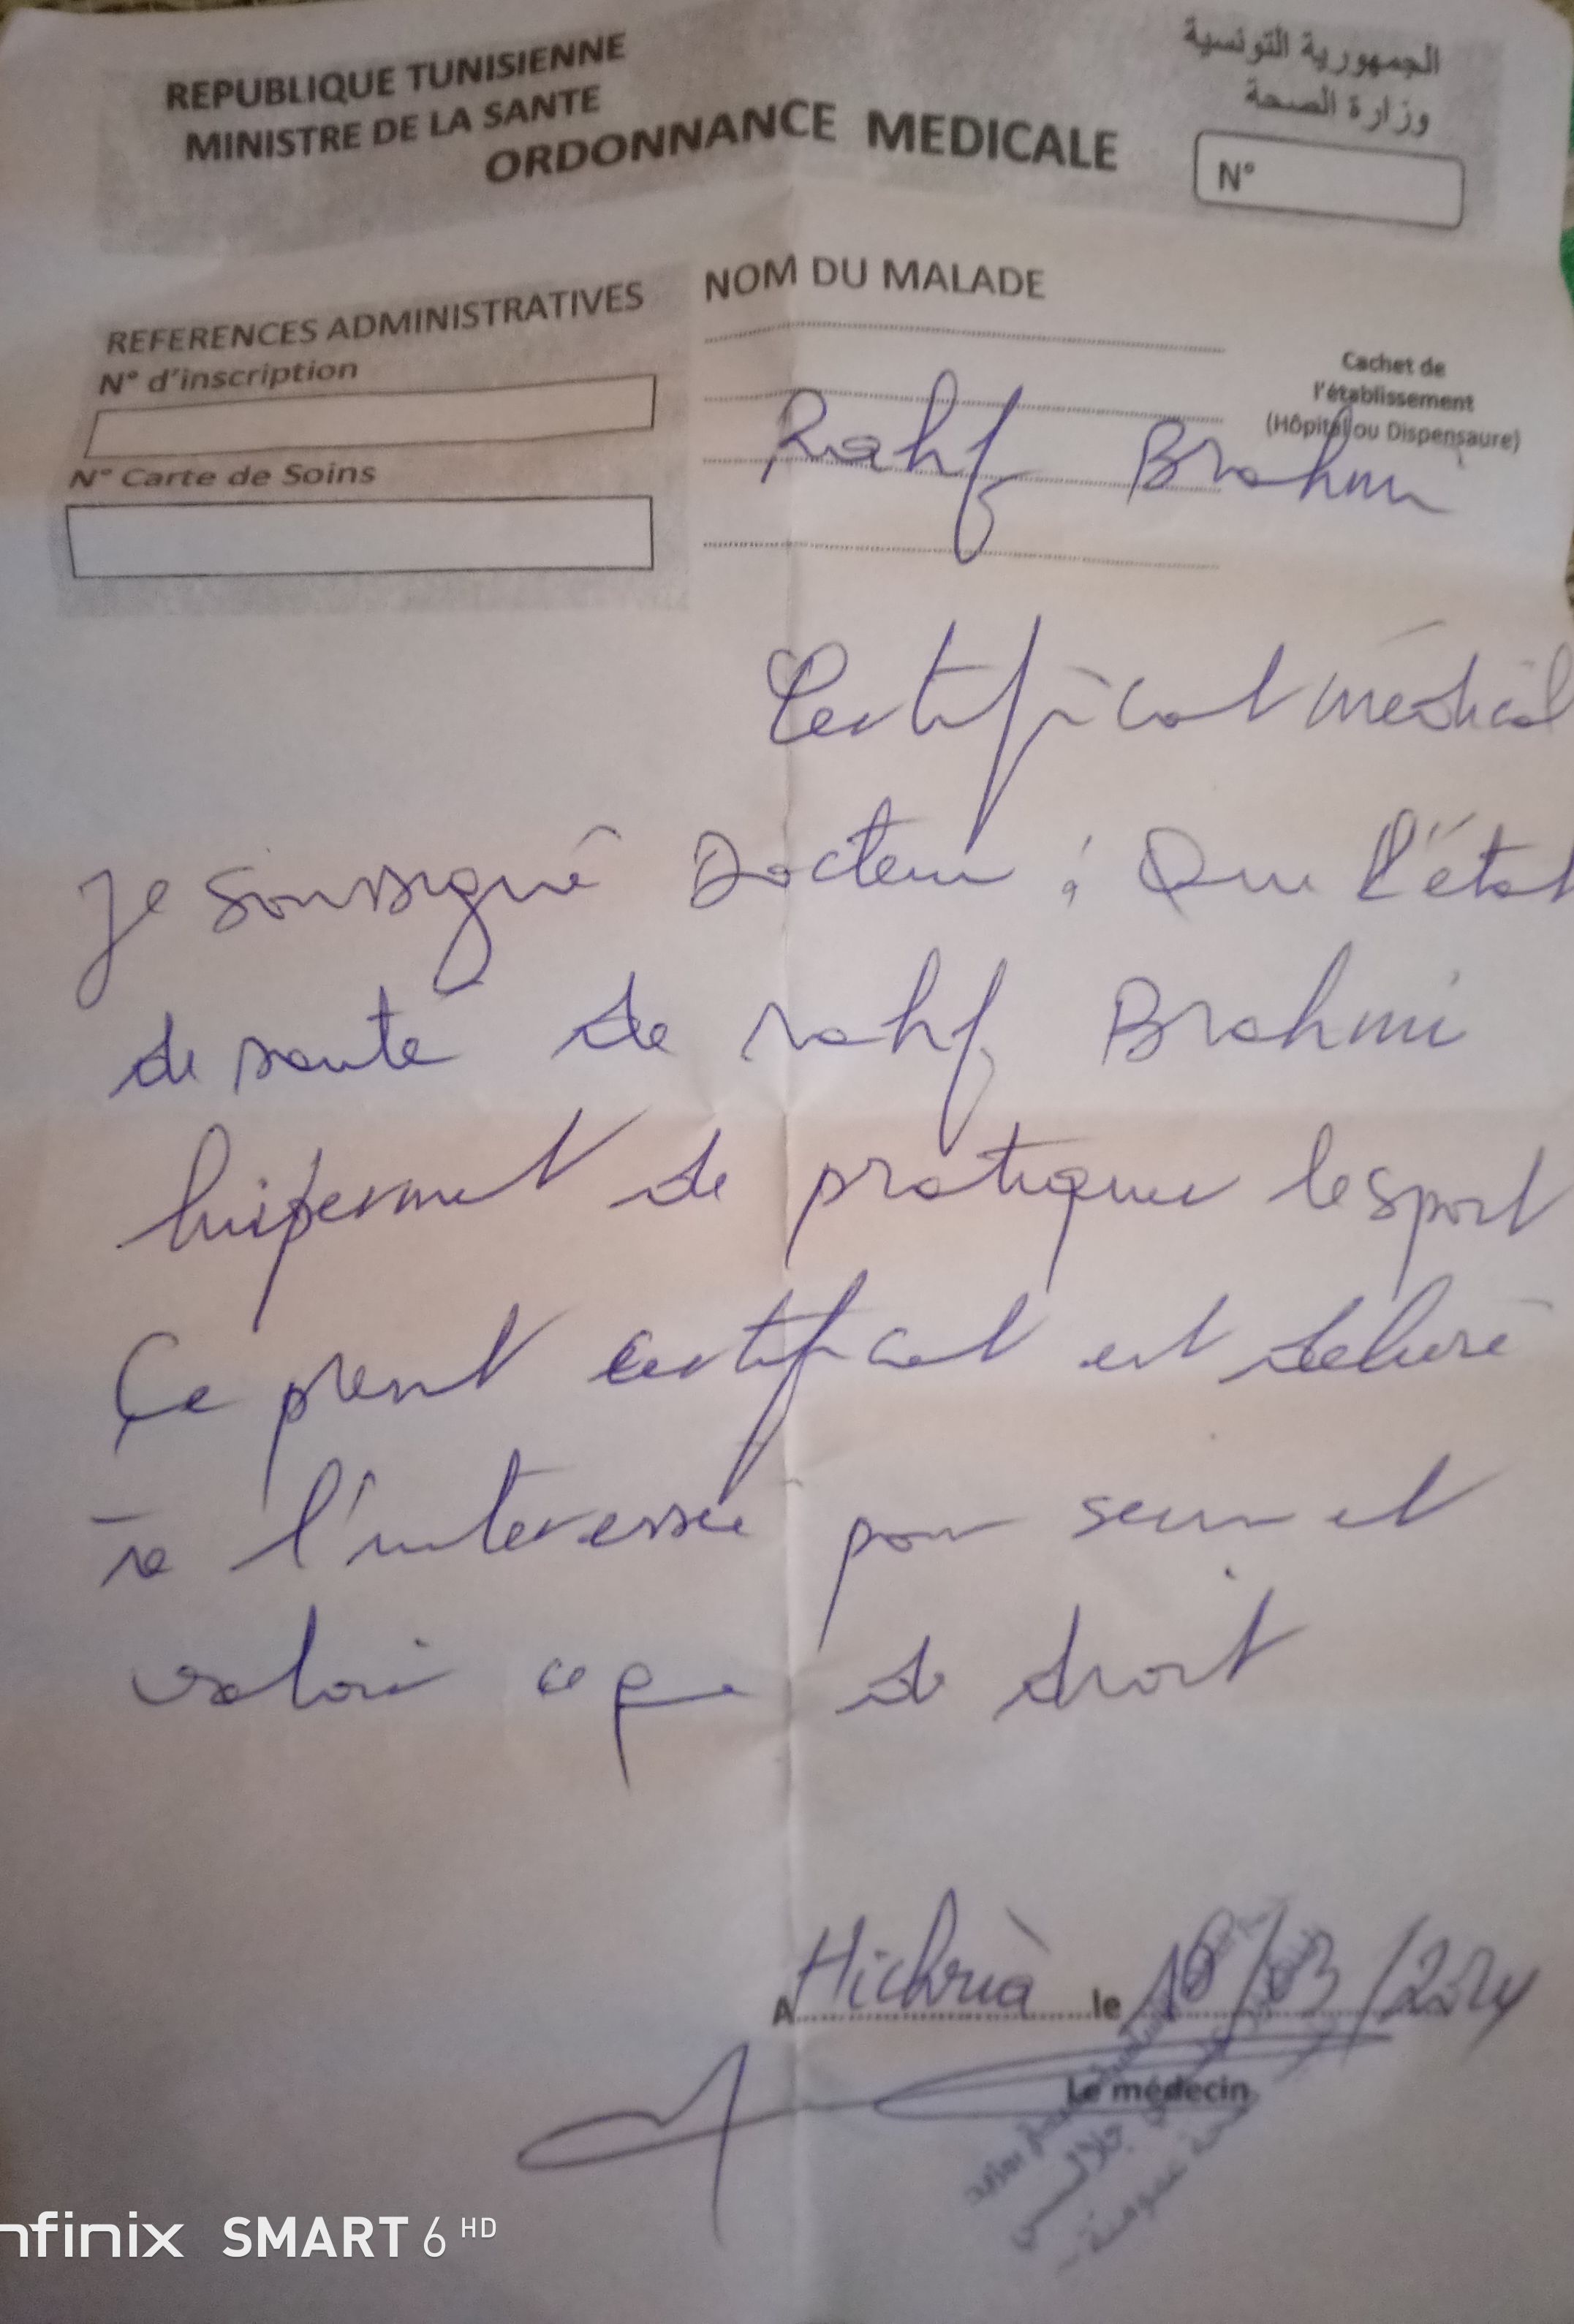 REPUBLIQUE TUNISIENNE
MINISTRE DE LA SANTE
الجمهورية التونسية
وزارة الصحة
ORDONNANCE MEDICALE
N°
REFERENCES ADMINISTRATIVES
N° d'inscription
N° Carte de Soins
NOM DU MALADE
Rahf Brahmi
Cachet de
l'établissement
(Hôpital ou Dispensaure)
Certificat médical
Je soussigné Docteur : Que l'état
de santé de rahf Brahmi
lui permet de pratiquer le sport
Ce present certificat est delivré
à l'interessée pour servir et
valoir ce que de droit
A Hichria le 18/03/2024
Le médecin
infinix SMART 6 HD